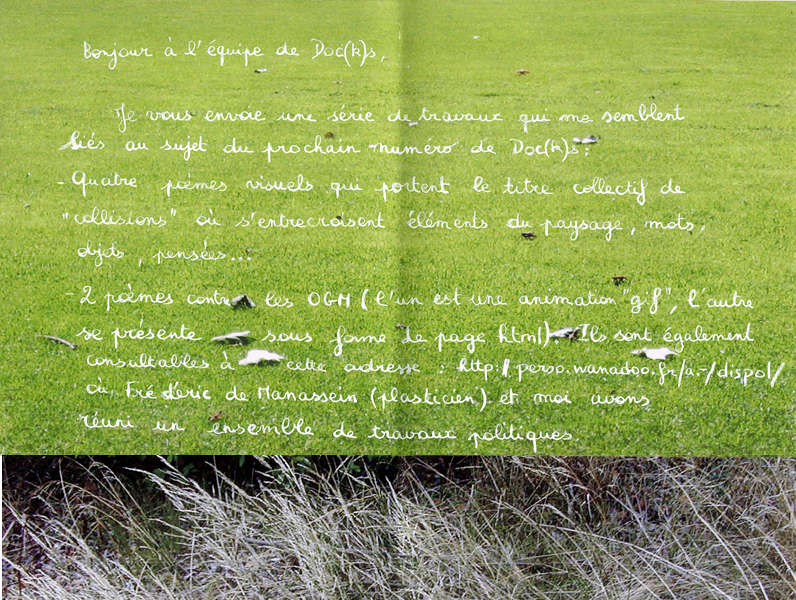 Bonjour à l'équipe de Doc(k)s,
Je vous envoie une série de travaux qui me semblent
liés au sujet du prochain numéro de Doc(k)s :
- Quatre poèmes visuels qui portent le titre collectif de
"collisions" où s'entrecroisent éléments du paysage, mots,
objets, pensées...
- 2 poèmes contre les OGM (l'un est une animation "gif", l'autre
se présente sous forme de page html). Ils sont également
consultables à cette adresse : http://perso.wanadoo.fr/a.-/dispol/
où Frédéric de Manassein (plasticien) et moi avons
réuni un ensemble de travaux politiques.